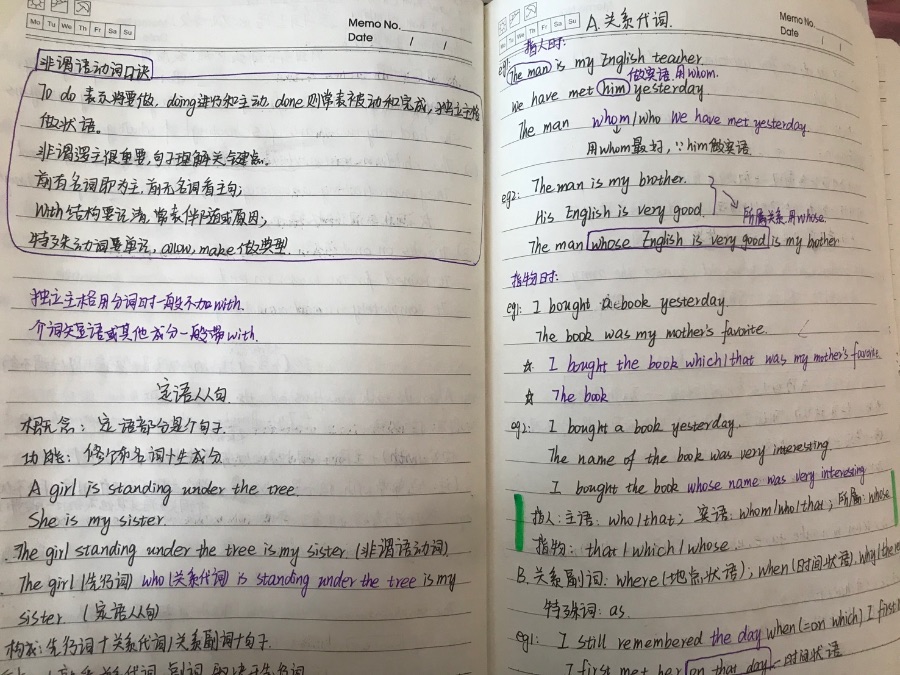 Mo Tu We Th Fr Sa Su
Memo No.
Date / /
非谓语动词口诀
To do 表示将要做, doing进行和主动, done 则常表被动和完成, 独立主格
做状语。
非谓逻主很重要, 句子理解关键点。
前有名词即为主, 前无名词看主句;
With结构要记清, 常表伴随或原因;
特殊动词要单记, allow, make做典型.
独立主格用分词时一般不加with.
介词短语或其他成分一般带with.
定语从句
概念: 定语部分是个句子.
功能: 修饰名词
A girl is standing under the tree.
She is my sister.
The girl standing under the tree is my sister. (非谓语动词)
The girl (先行词) who (关系代词) is standing under the tree is my
sister (定语从句)
构成: 先行词+关系代词/关系副词+句子.
Mo Tu We Th Fr Sa Su
Memo No.
Date / /
A. 关系代词.
指人时:
eg1: The man is my English teacher.
做宾语 用whom.
We have met him yesterday
The man whom/who we have met yesterday.
用whom最好, ∵him做宾语
eg2: The man is my brother.
His English is very good.
所属关系用whose.
The man whose English is very good is my brother
指物时:
eg1: I bought a book yesterday
The book was my mother's favorite.
☆ I bought the book which/that was my mother's favorite
☆ The book
eg2: I bought a book yesterday.
The name of the book was very interesting.
I bought the book whose name was very interesting
指人: 主语: who/that; 宾语: whom/who/that; 所属: whose
指物: that/which/whose.
B. 关系副词: where(地点状语); when(时间状语), why
特殊词: as.
eg1: I still remembered the day when (=on which) I first
I first met her on that day 时间状语